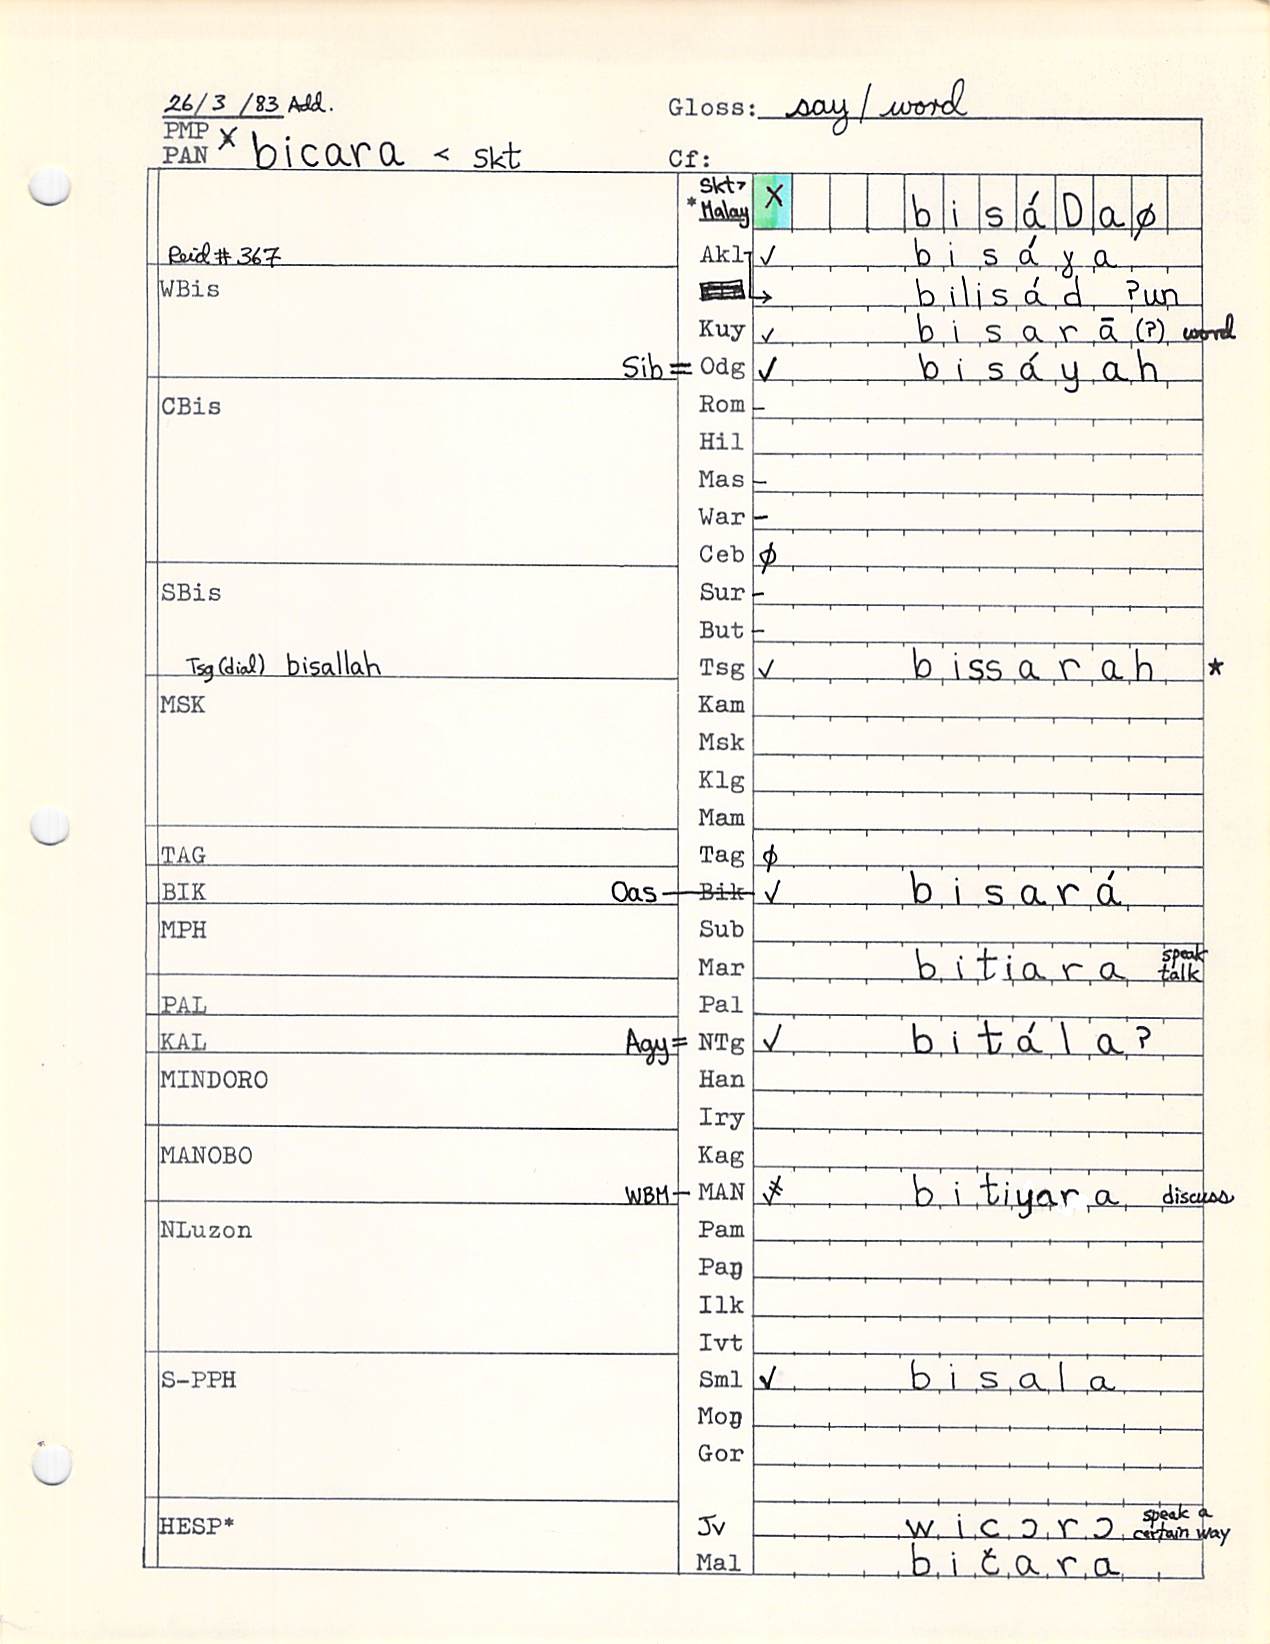 26/3/83 Add.
Gloss: say/word
PMP
PAN * bicara < skt
Cf:
Skt>
*Malay X b i s á D a ø
Reid # 367
Akl ✓ b i s á ɣ a
WBis
→ bilisád ʔun
Kuy ✓ b i s a r ā (?) word
Sib = Odg ✓ b i s á y a h
CBis
Rom –
Hil
Mas –
War –
Ceb ø
SBis
Sur –
But –
Tsg (dial) bisallah
Tsg ✓ b i ss a r a h *
MSK
Kam
Msk
Klg
Mam
TAG
Tag ø
BIK
Oas — Bik ✓ b i s a r á
MPH
Sub
Mar b i t i a r a speak
talk
PAL
Pal
KAL
Agy = NTg ✓ b i t á l a ʔ
MINDORO
Han
Iry
MANOBO
Kag
WBM – MAN b i t i y a r a discuss
NLuzon
Pam
Paŋ
Ilk
Ivt
S-PPH
Sml ✓ b i s a l a
Moŋ
Gor
HESP*
Jv w i c ɔ r ɔ speak a
certain way
Mal b i č a r a